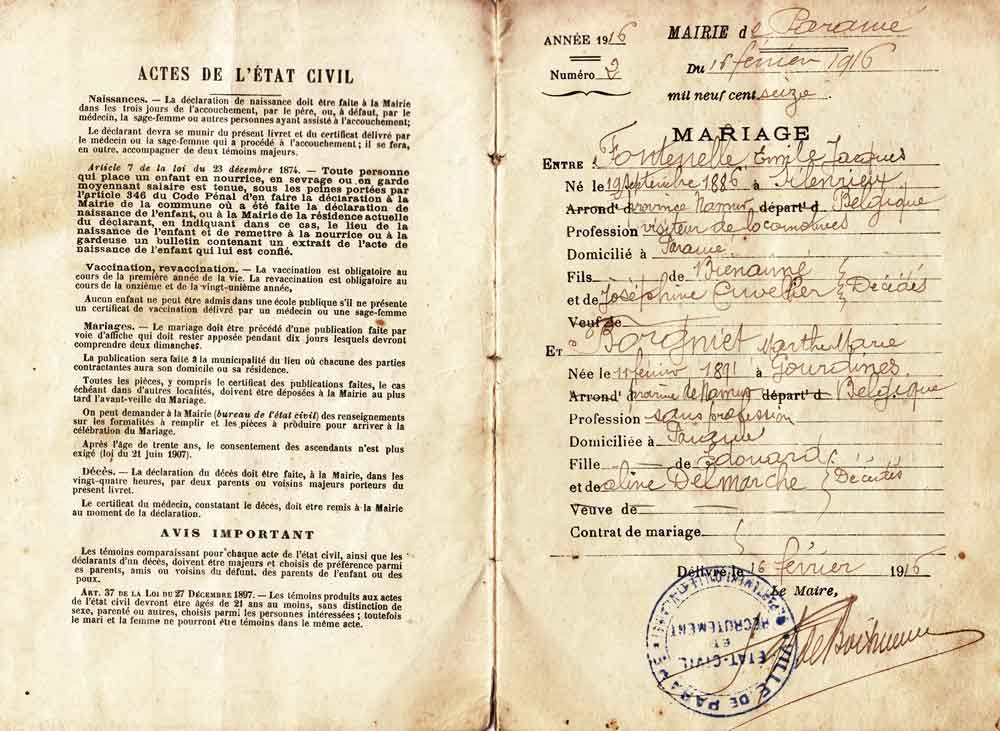 ACTES DE L'ÉTAT CIVIL
Naissances. — La déclaration de naissance doit être faite à la Mairie
dans les trois jours de l'accouchement, par le père, ou, à défaut, par le
médecin, la sage-femme ou autres personnes ayant assisté à l'accouchement;
Le déclarant devra se munir du présent livret et du certificat délivré par
le médecin ou la sage-femme qui a procédé à l'accouchement; il se fera,
en outre, accompagner de deux témoins majeurs.
Article 7 de la loi du 23 décembre 1874. — Toute personne
qui place un enfant en nourrice, en sevrage ou en garde
moyennant salaire est tenue, sous les peines portées par
l'article 346 du Code Pénal d'en faire la déclaration à la
Mairie de la commune où a été faite la déclaration de
naissance de l'enfant, ou à la Mairie de la résidence actuelle
du déclarant, en indiquant dans ce cas, le lieu de la
naissance de l'enfant et de remettre à la nourrice ou à la
gardeuse un bulletin contenant un extrait de l'acte de
naissance de l'enfant qui lui est confié.
Vaccination, revaccination. — La vaccination est obligatoire au
cours de la première année de la vie. La revaccination est obligatoire au
cours de la onzième et de la vingt-unième année,
Aucun enfant ne peut être admis dans une école publique s'il ne présente
un certificat de vaccination délivré par un médecin ou une sage-femme
Mariages. — Le mariage doit être précédé d'une publication faite par
voie d'affiche qui doit rester apposée pendant dix jours lesquels devront
comprendre deux dimanches.
La publication sera faite à la municipalité du lieu où chacune des parties
contractantes aura son domicile ou sa résidence.
Toutes les pièces, y compris le certificat des publications faites, le cas
échéant dans d'autres localités, doivent être déposées à la Mairie au plus
tard l'avant-veille du Mariage.
On peut demander à la Mairie (bureau de l'état civil) des renseignements
sur les formalités à remplir et les pièces à produire pour arriver à la
célébration du Mariage.
Après l'âge de trente ans, le consentement des ascendants n'est plus
exigé (loi du 21 juin 1907).
Décès. — La déclaration du décès doit être faite, à la Mairie, dans les
vingt-quatre heures, par deux parents ou voisins majeurs porteurs du
présent livret.
Le certificat du médecin, constatant le décès, doit être remis à la Mairie
au moment de la déclaration.
AVIS IMPORTANT
Les témoins comparaissant pour chaque acte de l'état civil, ainsi que les
déclarants d'un décès, doivent être majeurs et choisis de préférence parmi
es parents, amis ou voisins du défunt, des parents de l'enfant ou des
poux.
ART. 37 DE LA LOI DU 27 DÉCEMBRE 1897. — Les témoins produits aux actes
de l'état civil devront être âgés de 21 ans au moins, sans distinction de
sexe, parenté ou autres, choisis par les personnes intéressées; toutefois
le mari et la femme ne pourront être témoins dans le même acte.
ANNÉE 1916
Numéro 2
MAIRIE de Paramé
Du 16 février 1916
mil neuf cent seize
MARIAGE
ENTRE Fontenelle Emile Jacques
Né le 19 septembre 1886 à
Arrond' province Namur départ' d Belgique
Profession visiteur de locomotives
Domicilié à Paramé
Fils — de Bienaimé
et de Joséphine Cuvelier Décédés
Veuf de —
ET Borgniet Marthe Marie
Née le 11 février 1891 à Gourdines
Arrond' province de Namur départ' d Belgique
Profession sans profession
Domiciliée à Paramé
Fille — de Edouard
et de Aline Delmarche Décédés
Veuve de —
Contrat de mariage
Délivré le 16 février 1916
Le Maire,
VILLE DE PARAMÉ
ÉTAT-CIVIL
ET
RECRUTEMENT